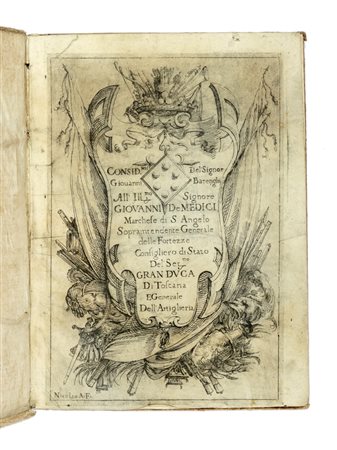 CONSID.ni Del Signor
Giovanni Batenghi
All Ill.mo Signore
GIOVANNI De MEDICI
Marchese di S Angelo
Sopraintendente Generale
delle Fortezze
Consigliero di Stato
Del Ser.mo
GRAN DVCA
Di Toscana
E Generale
Dell'Artiglieria